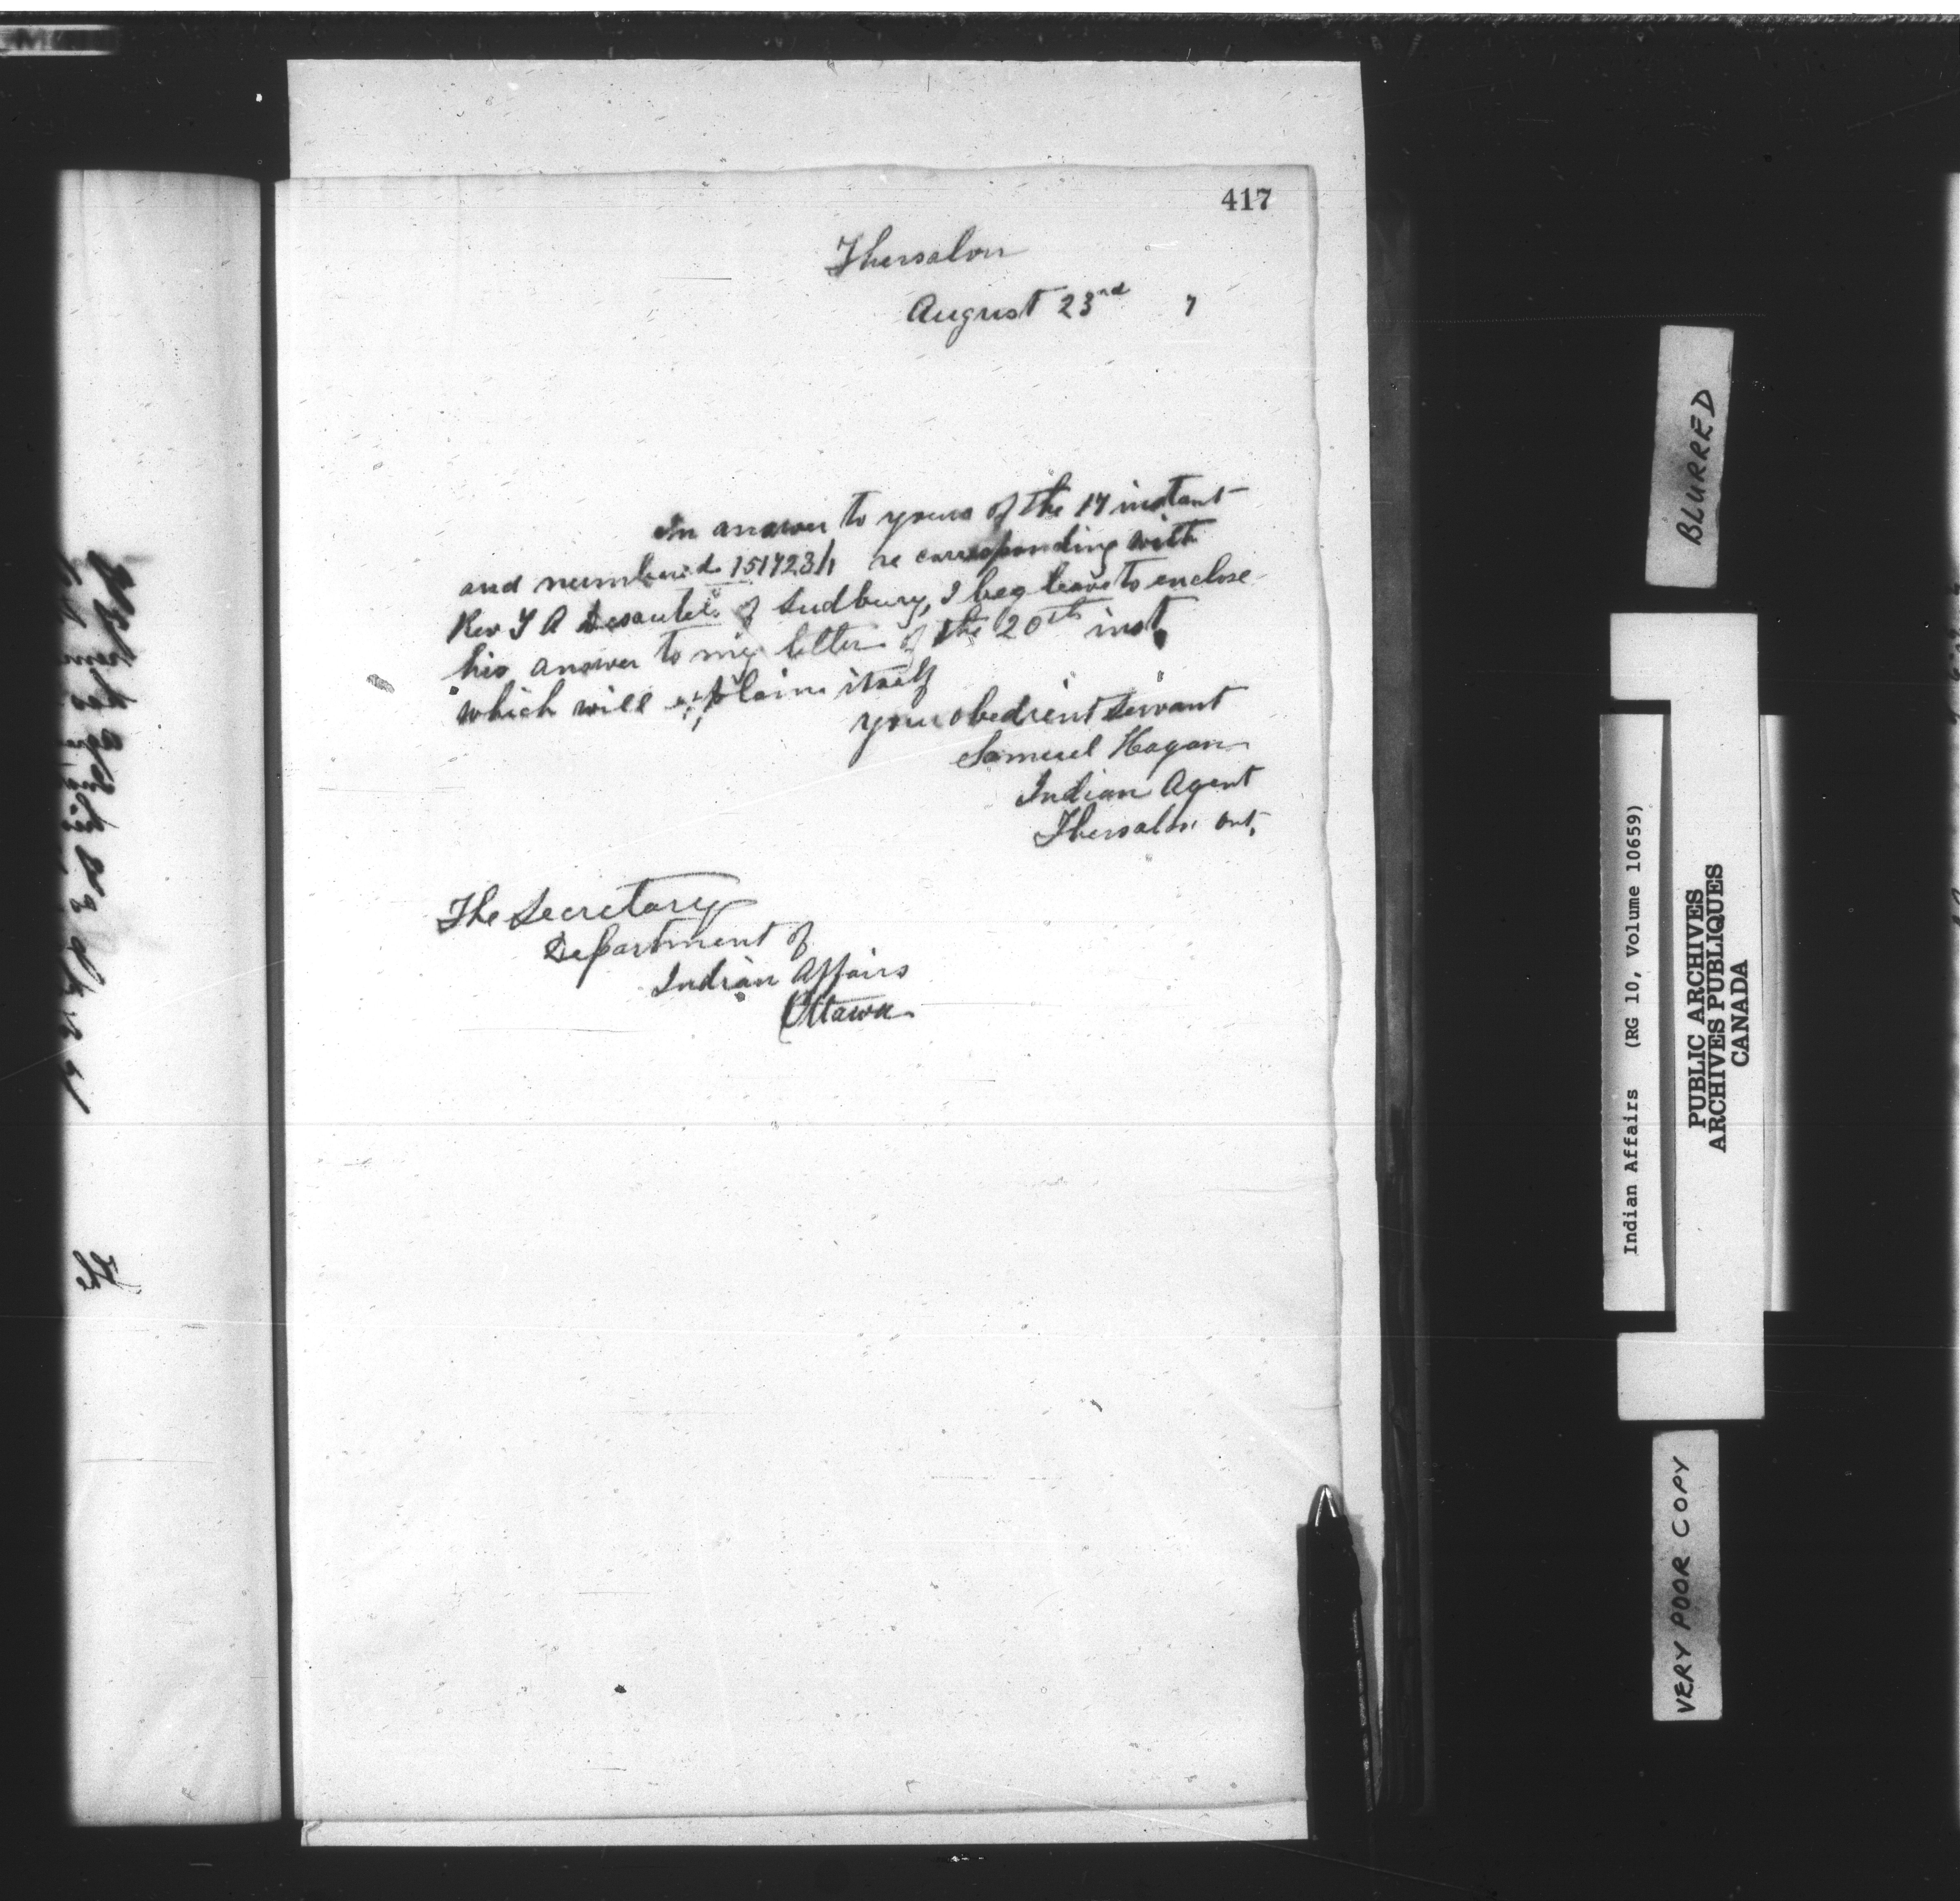 417
Thessalon
August 23rd 7
In answer to yours of the 17 instant
and numbered 151723/1 re corresponding with
Rev T A Desautels of Sudbury, I beg leave to enclose
his answer to my letter of the 20th inst,
which will explain itself
your obedient servant
Samuel Hagan
Indian Agent
Thessalon Ont,
The Secretary
Department of
Indian Affairs
Ottawa
BLURRED
Indian Affairs (RG 10, Volume 10659)
PUBLIC ARCHIVES
ARCHIVES PUBLIQUES
CANADA
VERY POOR COPY